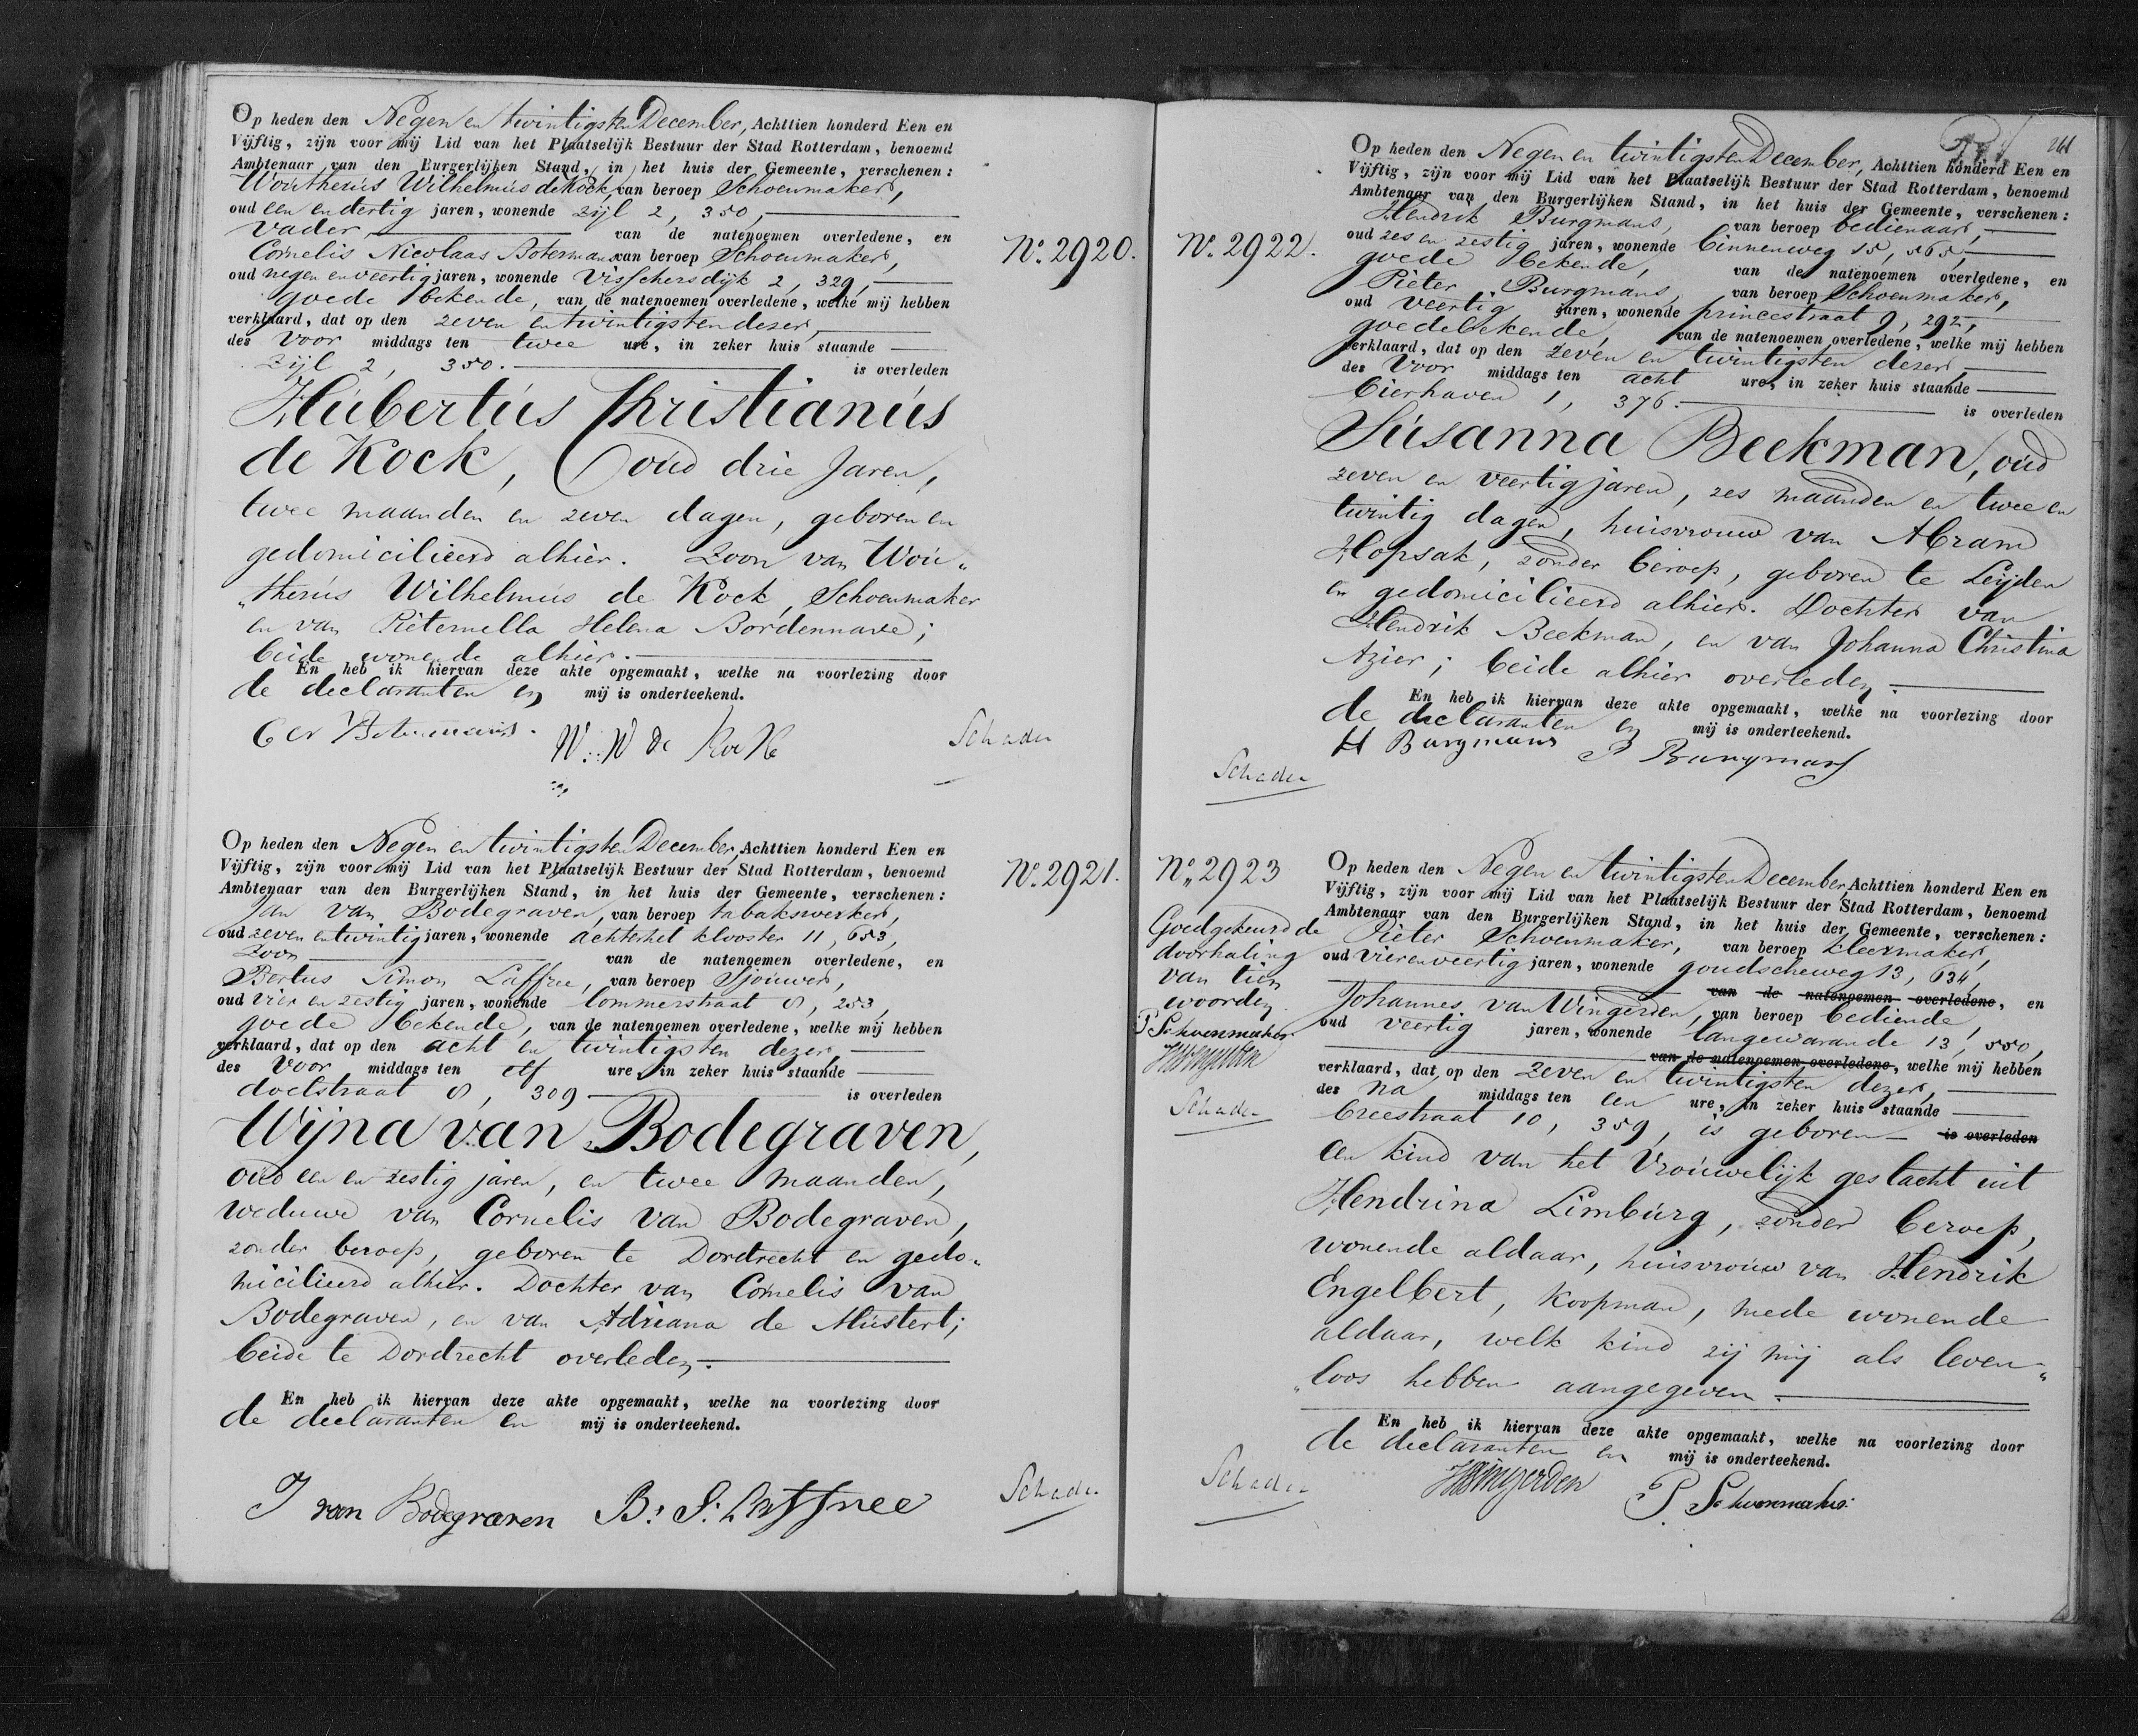 Op heden den Negen en twintigsten December, Achttien honderd Een en
Vijftig, zijn voor mij Lid van het Plaatselijk Bestuur der Stad Rotterdam, benoemd
Ambtenaar van den Burgerlijken Stand, in het huis der Gemeente, verschenen:
Woutherus Wilhelmus de Kock, van beroep Schoenmaker,
oud een en dertig jaren, wonende Zijl 2, 350,
Vader, van de natenoemen overledene, en
Cornelis Nicolaas Botermans van beroep Schoenmaker,
oud negen en veertig jaren, wonende Visschersdijk 2, 329,
goede bekende, van de natenoemen overledene, welke mij hebben
verklaard, dat op den zeven en twintigsten dezer,
des Voor middags ten twee ure, in zeker huis staande
Zijl 2, 350. is overleden
Hubertus Christianus
de Kock, oud drie Jaren,
twee maanden en zeven dagen, geboren en
gedomicilieerd alhier. Zoon van Wou„
„therus Wilhelmus de Kock, Schoenmaker
en van Pieternella Helena Bordennave;
beide wonende alhier.
En heb ik hiervan deze akte opgemaakt, welke na voorlezing door
de declaranten en mij is onderteekend.
Botermans. W. W de Kock
Schadee
No. 2920.
Op heden den Negen en twintigsten December, Achttien honderd Een en
Vijftig, zijn voor mij Lid van het Plaatselijk Bestuur der Stad Rotterdam, benoemd
Ambtenaar van den Burgerlijken Stand, in het huis der Gemeente, verschenen:
Jan van Bodegraven, van beroep tabakswerker,
oud zeven en twintig jaren, wonende achter het klooster 11, 653,
Zoon van de natenoemen overledene, en
Bertus Simon Laffree, van beroep Sjouwer,
oud vier en zestig jaren, wonende Lommerstraat 8, 253,
goede bekende, van de natenoemen overledene, welke mij hebben
verklaard, dat op den acht en twintigsten dezer,
des Voor middags ten elf ure, in zeker huis staande
doelstraat 8, 309 is overleden
Wijna van Bodegraven,
oud een en zestig jaren, en twee maanden,
weduwe van Cornelis van Bodegraven,
zonder beroep, geboren te Dordrecht en gedo„
micilieerd alhier. Dochter van Cornelis van
Bodegraven, en van Adriana de Mustert;
beide te Dordrecht overleden.
En heb ik hiervan deze akte opgemaakt, welke na voorlezing door
de declaranten en mij is onderteekend.
J van Bodegraven B: S: Laffree
Schadee
No. 2921.
261
No. 2922.
Op heden den Negen en twintigsten December, Achttien honderd Een en
Vijftig, zijn voor mij Lid van het Plaatselijk Bestuur der Stad Rotterdam, benoemd
Ambtenaar van den Burgerlijken Stand, in het huis der Gemeente, verschenen:
Hendrik Burgmans, van beroep bedienaar,
oud zes en zestig jaren, wonende binnenweg 15, 565,
goede bekende, van de natenoemen overledene, en
Pieter Burgmans, van beroep Schoenmaker,
oud veertig jaren, wonende princestraat 9, 292,
goede bekende, van de natenoemen overledene, welke mij hebben
verklaard, dat op den zeven en twintigsten dezer,
des Voor middags ten acht ure, in zeker huis staande
bierhaven 1, 376. is overleden
Susanna Beekman, oud
zeven en veertig jaren, zes maanden en twee en
twintig dagen, huisvrouw van Abram
Hopsak, zonder beroep, geboren te Leijden
en gedomicilieerd alhier. Dochter van
Hendrik Beekman, en van Johanna Christina
Azier; beide alhier overleden.
En heb ik hiervan deze akte opgemaakt, welke na voorlezing door
de declaranten en mij is onderteekend.
H Burgmans P Burgmans
Schadee
No. 2923
Goedgekeurd de
doorhaling
van tien
woorden
P Schoenmaker
JVWingerden
Schadee
Op heden den Negen en twintigsten December, Achttien honderd Een en
Vijftig, zijn voor mij Lid van het Plaatselijk Bestuur der Stad Rotterdam, benoemd
Ambtenaar van den Burgerlijken Stand, in het huis der Gemeente, verschenen:
Pieter Schoenmaker, van beroep kleermaker,
oud vier en veertig jaren, wonende goudscheweg 13, 634,
van de natenoemen overledene, en
Johannes van Wingerden, van beroep bediende,
oud veertig jaren, wonende langewarande 13, 550,
van de natenoemen overledene, welke mij hebben
verklaard, dat op den zeven en twintigsten dezer,
des na middags ten een ure, in zeker huis staande
breestraat 10, 359, is geboren is overleden
een kind van het Vrouwelijk geslacht uit
Hendrina Limburg, zonder beroep,
wonende aldaar, huisvrouw van Hendrik
Engelbert, koopman, mede wonende
aldaar, welk kind zij mij als leven„
„loos hebben aangegeven.
En heb ik hiervan deze akte opgemaakt, welke na voorlezing door
de declaranten en mij is onderteekend.
JVWingerden P. Schoenmaker
Schadee